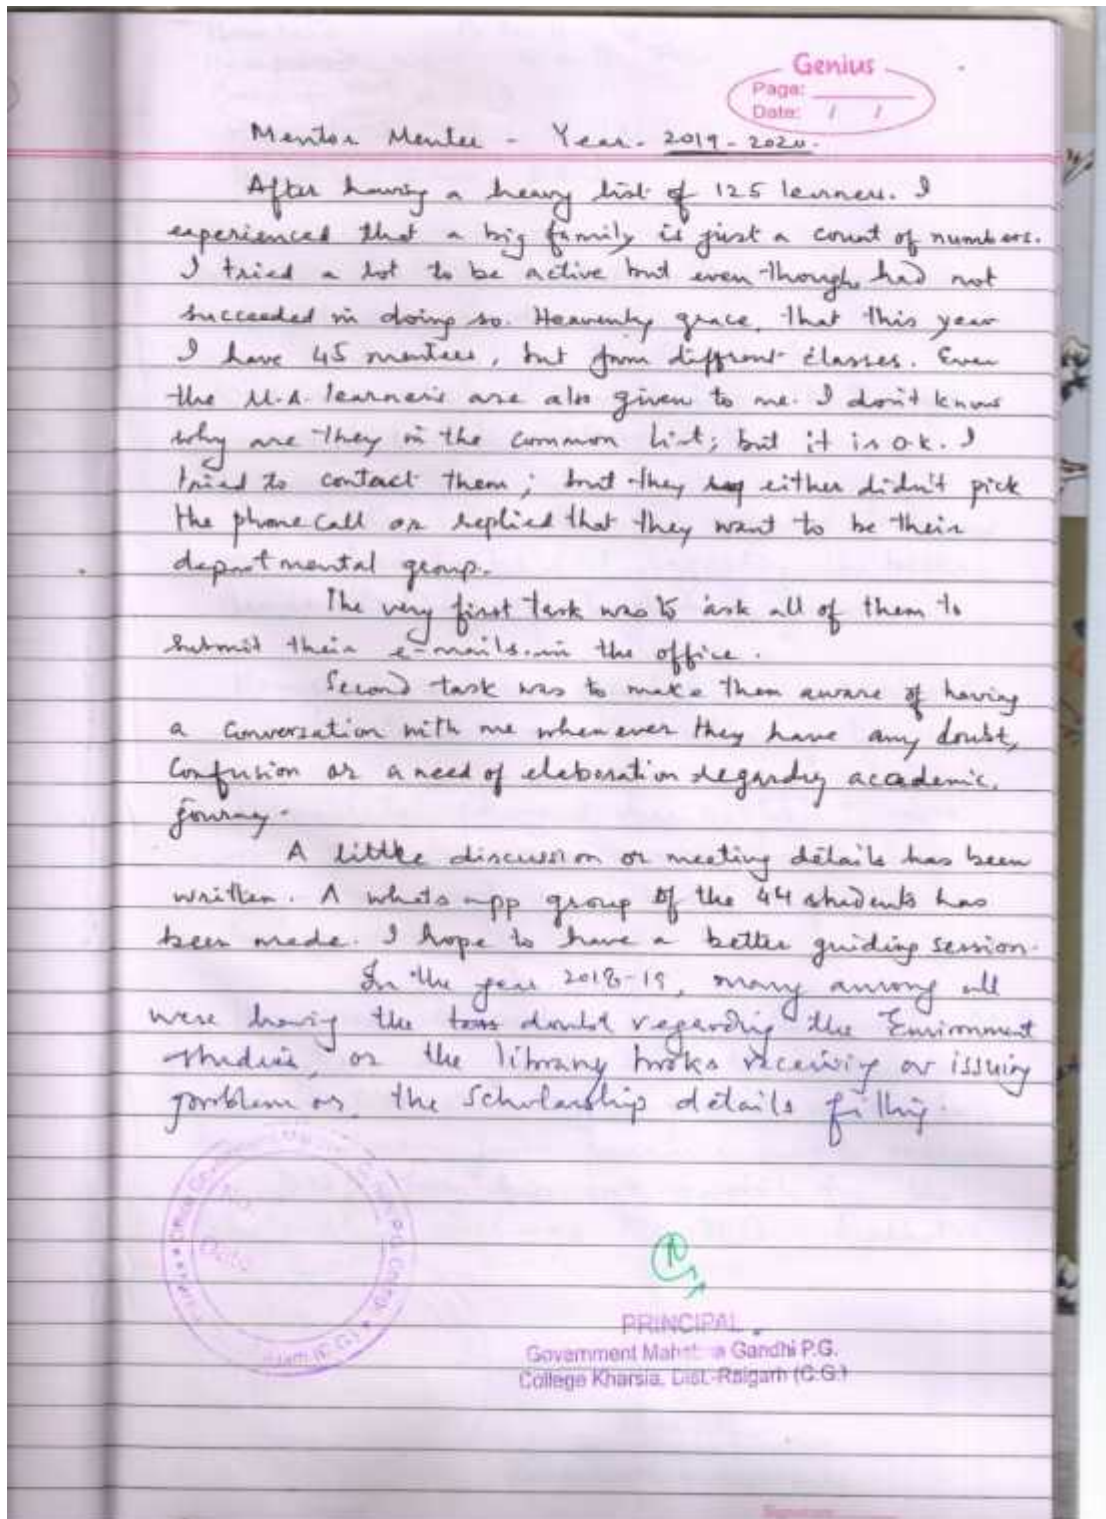 Genius
Page:
Date: / /
Mentor Mentee - Year- 2019-2020.
After having a heavy list of 125 learners. I
experienced that a big family is just a count of numbers.
I tried a lot to be active but even though had not
succeeded in doing so. Heavenly grace, that this year
I have 45 mentees, but from different classes. Even
the M.A. learners are also given to me. I don't know
why are they in the common list; but it is o.k. I
tried to contact them; but they either didn't pick
the phone call or replied that they want to be their
departmental group.
The very first task was to ask all of them to
submit their e-mails in the office.
Second task was to make them aware of having
a conversation with me whenever they have any doubt,
confusion or a need of elaboration regarding academic
journey.
A little discussion or meeting details has been
written. A whats app group of the 44 students has
been made. I hope to have a better guiding session.
In the year 2018-19, many among all
were having the doubt regarding the Environment
studies, or the library books receiving or issuing
problem or the scholarship details filling.
No.
Date
P.G. College
PRINCIPAL
Government Mahatma Gandhi P.G.
College Kharsia, Dist.-Raigarh (C.G.)